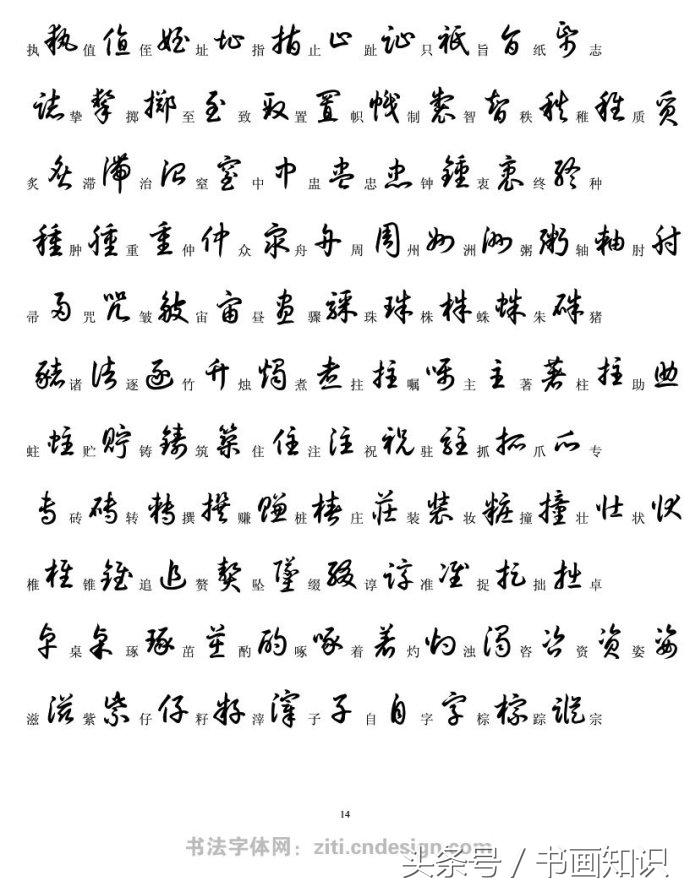 执 執 值 值 侄 姪 址 址 指 指 止 止 趾 趾 只 祇 旨 旨 纸 帋 志
誌 挚 摯 掷 擲 至 至 致 致 置 置 帜 幟 制 製 智 智 秩 秩 稚 稚 质 質
炙 炙 滞 滯 治 治 窒 窒 中 中 盅 盅 忠 忠 钟 鍾 衷 衷 终 終 种
種 肿 腫 重 重 仲 仲 众 衆 舟 舟 周 周 州 州 洲 洲 粥 粥 轴 軸 肘 肘
帚 帚 咒 咒 皱 皺 宙 宙 昼 晝 骤 驟 珠 珠 株 株 蛛 蛛 朱 硃 猪
豬 诸 諸 逐 逐 竹 竹 烛 燭 煮 煮 拄 拄 嘱 囑 主 主 著 著 柱 柱 助 助
蛀 蛀 贮 貯 铸 鑄 筑 築 住 住 注 注 祝 祝 驻 駐 抓 抓 爪 爪 专
專 砖 磚 转 轉 撰 撰 赚 賺 桩 樁 庄 莊 装 裝 妆 粧 撞 撞 壮 壯 状 狀
椎 椎 锥 錐 追 追 赘 贅 坠 墜 缀 綴 谆 諄 准 准 捉 捉 拙 拙 卓
卓 桌 桌 琢 琢 茁 茁 酌 酌 啄 啄 着 着 灼 灼 浊 濁 咨 咨 资 資 姿 姿
滋 滋 紫 紫 仔 仔 籽 籽 滓 滓 子 子 自 自 字 字 棕 棕 踪 踪 宗
14
书法字体网：ziti.cndesign.com
头条号 / 书画知识